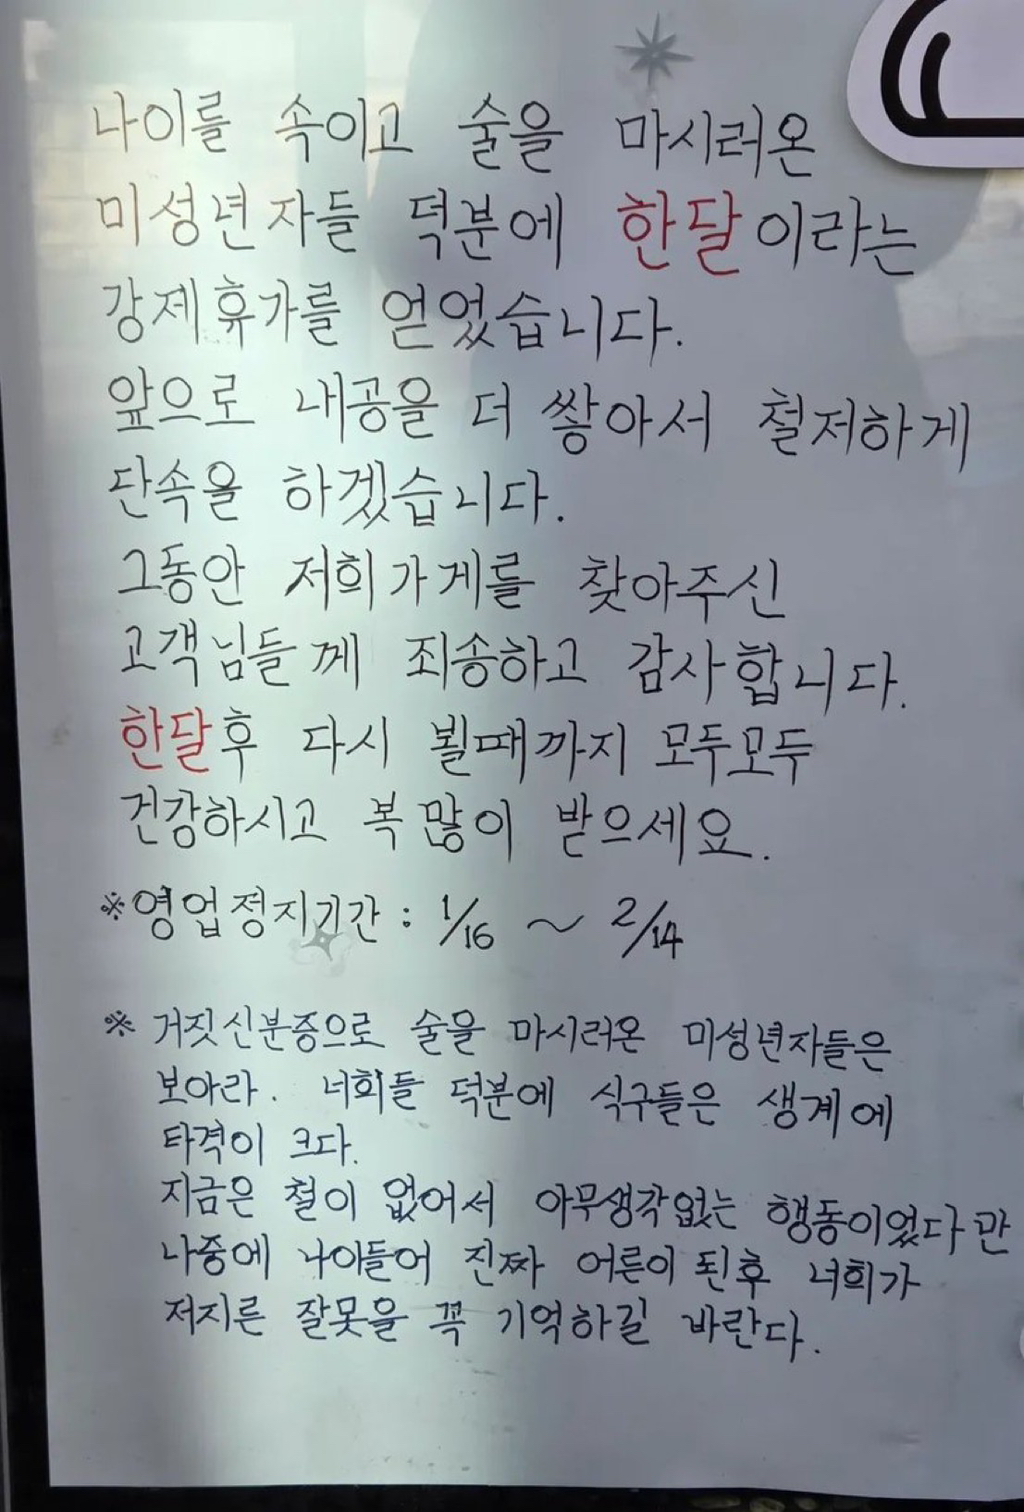 나이를 속이고 술을 마시러온
미성년자들 덕분에 한달이라는
강제휴가를 얻었습니다.
앞으로 내공을 더 쌓아서 철저하게
단속을 하겠습니다.
그동안 저희가게를 찾아주신
고객님들께 죄송하고 감사합니다.
한달후 다시 뵐때까지 모두모두
건강하시고 복 많이 받으세요.
※영업정지기간 : 1/16 ~ 2/14
※ 거짓신분증으로 술을 마시러온 미성년자들은
보아라. 너희들 덕분에 식구들은 생계에
타격이 크다.
지금은 철이 없어서 아무생각없는 행동이었다만
나중에 나이들어 진짜 어른이 된후 너희가
저지른 잘못을 꼭 기억하길 바란다.